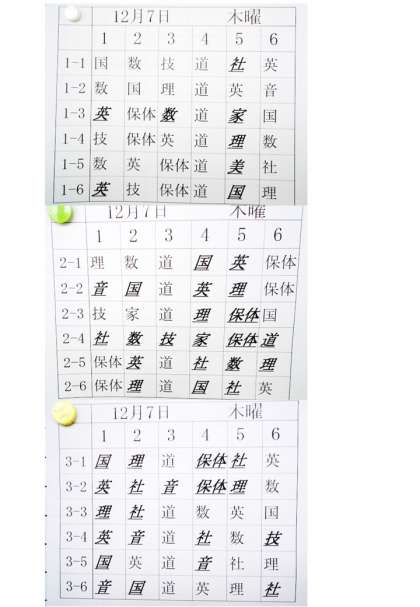 12月7日 木曜
1 2 3 4 5 6
1-1 国 数 技 道 社 英
1-2 数 国 理 道 英 音
1-3 英 保体 数 道 家 国
1-4 技 保体 英 道 理 数
1-5 数 英 保体 道 美 社
1-6 英 技 保体 道 国 理
12月7日 木曜
1 2 3 4 5 6
2-1 理 数 道 国 英 保体
2-2 音 国 道 英 理 保体
2-3 技 家 道 理 保体 国
2-4 社 数 技 家 保体 道
2-5 保体 英 道 社 数 理
2-6 保体 理 道 国 社 英
12月7日 木曜
1 2 3 4 5 6
3-1 国 理 道 保体 社 英
3-2 英 社 音 保体 理 数
3-3 理 社 道 数 英 国
3-4 英 音 道 社 数 技
3-5 国 英 道 音 社 理
3-6 音 国 道 英 理 社